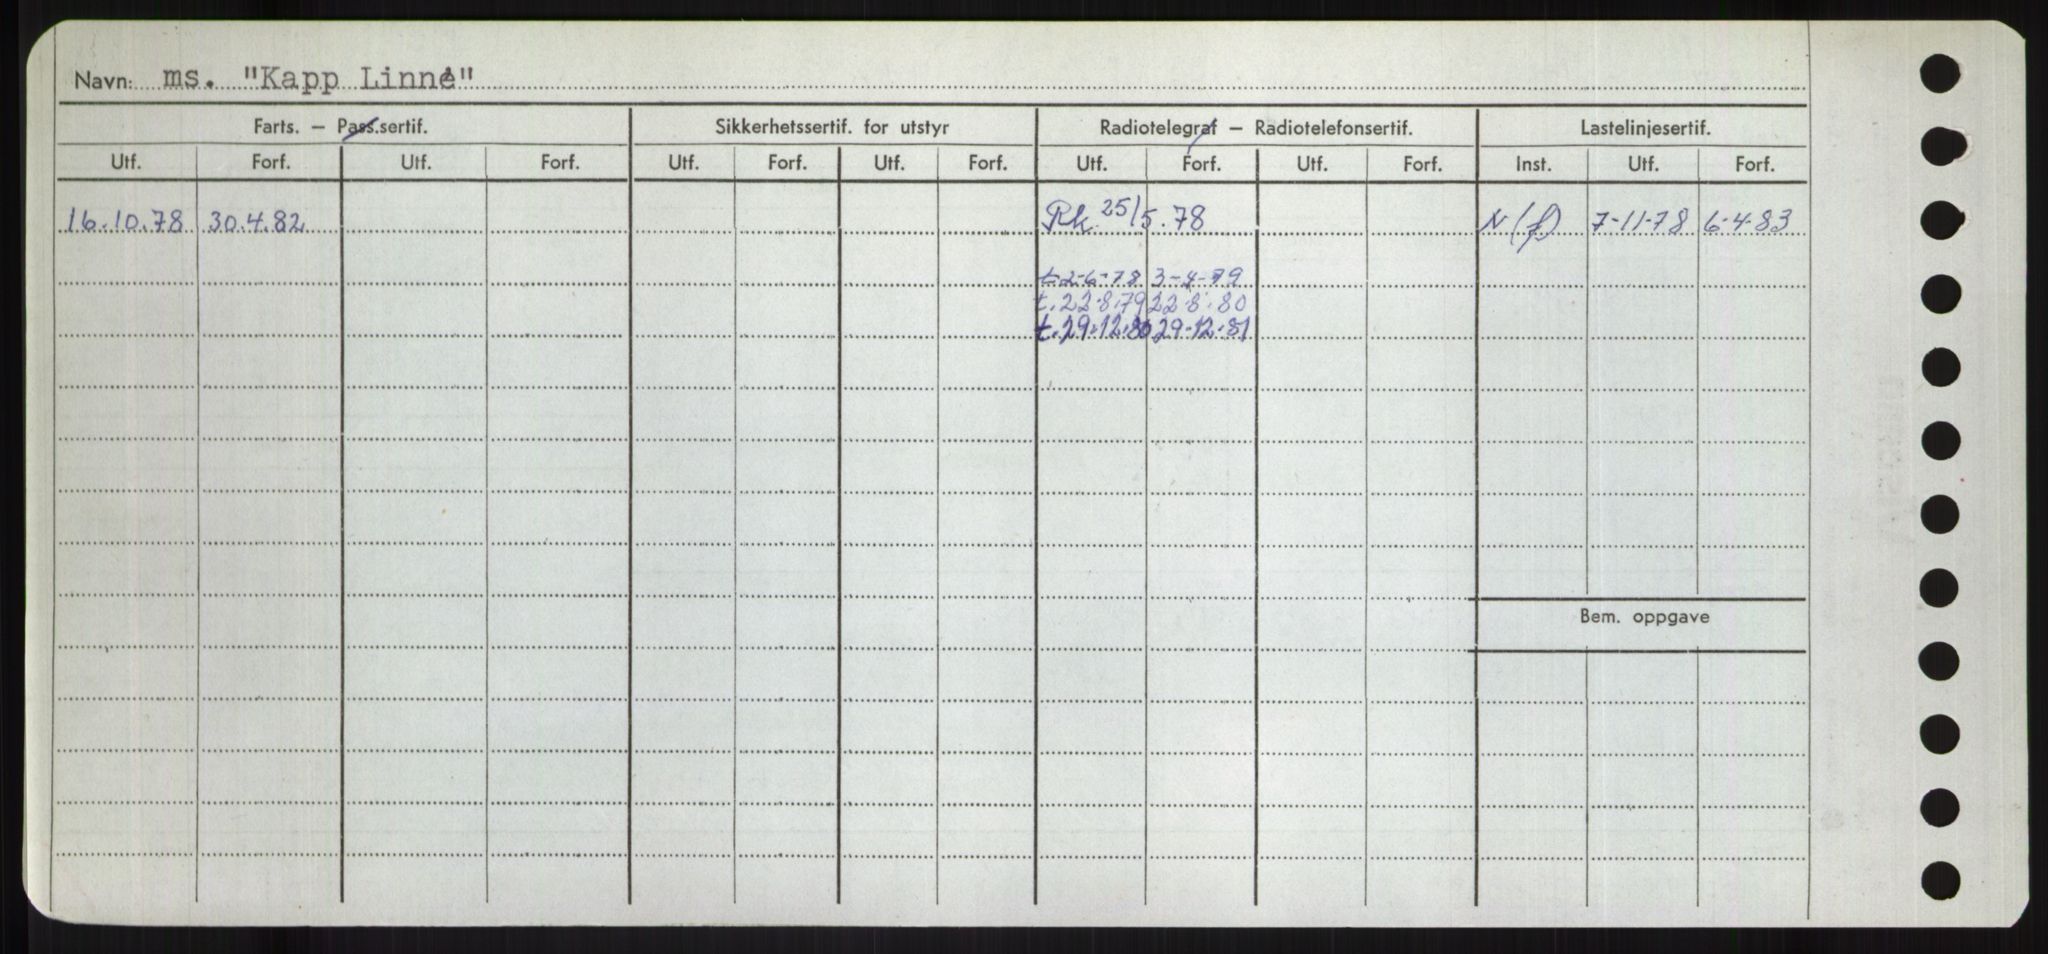 Navn: ms. "Kapp Linné"
Farts. – Pass.sertif. Sikkerhetssertif. for utstyr Radiotelegraf – Radiotelefonsertif. Lastelinjesertif.
Utf. Forf. Utf. Forf. Utf. Forf. Utf. Forf. Utf. Forf. Utf. Forf. Inst. Utf. Forf.
16.10.78 30.4.82 Rk. 25/5.78 N (f) 7-11-78 6-4-83
t 2-6-78 3-4-79
t. 22.8.79 22.8.80
t. 29.12.80 29-12-81
Bem. oppgave